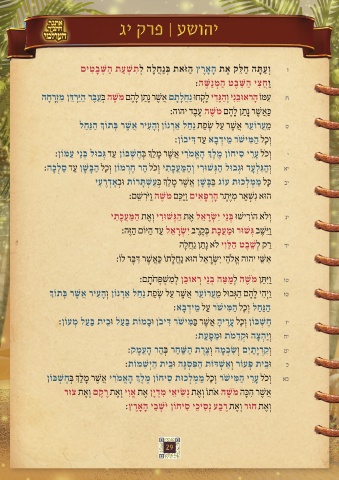 יהושע | פרק יג
ז וְעַתָּה חַלֵּק אֶת הָאָרֶץ הַזֹּאת בְּנַחֲלָה לְתִשְׁעַת הַשְּׁבָטִים
וַחֲצִי הַשֵּׁבֶט הַמְנַשֶּׁה:
ח עִמּוֹ הָראוּבֵנִי וְהַגָּדִי לָקְחוּ נַחֲלָתָם אֲשֶׁר נָתַן לָהֶם מֹשֶׁה בְּעֵבֶר הַיַּרְדֵּן מִזְרָחָה
כַּאֲשֶׁר נָתַן לָהֶם מֹשֶׁה עֶבֶד יהוה:
ט מֵעֲרוֹעֵר אֲשֶׁר עַל שְׂפַת נַחַל אַרְנוֹן וְהָעִיר אֲשֶׁר בְּתוֹךְ הַנַּחַל
וְכָל הַמִּישֹׁר מֵידְבָא עַד דִּיבוֹן:
י וְכֹל עָרֵי סִיחוֹן מֶלֶךְ הָאֱמֹרִי אֲשֶׁר מָלַךְ בְּחֶשְׁבּוֹן עַד גְּבוּל בְּנֵי עַמּוֹן:
יא וְהַגִּלְעָד וּגְבוּל הַגְּשׁוּרִי וְהַמַּעֲכָתִי וְכֹל הַר חֶרְמוֹן וְכָל הַבָּשָׁן עַד סַלְכָה:
יב כָּל מַמְלְכוּת עוֹג בַּבָּשָׁן אֲשֶׁר מָלַךְ בְּעַשְׁתָּרוֹת וּבְאֶדְרֶעִי
הוּא נִשְׁאַר מִיֶּתֶר הָרְפָאִים וַיַּכֵּם מֹשֶׁה וַיֹּרִשֵׁם:
יג וְלֹא הוֹרִישׁוּ בְּנֵי יִשְׂרָאֵל אֶת הַגְּשׁוּרִי וְאֶת הַמַּעֲכָתִי
וַיֵּשֶׁב גְּשׁוּר וּמַעֲכָת בְּקֶרֶב יִשְׂרָאֵל עַד הַיּוֹם הַזֶּה:
יד רַק לְשֵׁבֶט הַלֵּוִי לֹא נָתַן נַחֲלָה
אִשֵּׁי יהוה אֱלֹהֵי יִשְׂרָאֵל הוּא נַחֲלָתוֹ כַּאֲשֶׁר דִּבֶּר לוֹ:
טו וַיִּתֵּן מֹשֶׁה לְמַטֵּה בְנֵי רְאוּבֵן לְמִשְׁפְּחֹתָם:
טז וַיְהִי לָהֶם הַגְּבוּל מֵעֲרוֹעֵר אֲשֶׁר עַל שְׂפַת נַחַל אַרְנוֹן וְהָעִיר אֲשֶׁר בְּתוֹךְ
הַנַּחַל וְכָל הַמִּישֹׁר עַל מֵידְבָא:
יז חֶשְׁבּוֹן וְכָל עָרֶיהָ אֲשֶׁר בַּמִּישֹׁר דִּיבֹן וּבָמוֹת בַּעַל וּבֵית בַּעַל מְעוֹן:
יח וְיַהְצָה וּקְדֵמֹת וּמֵפָעַת:
יט וְקִרְיָתַיִם וְשִׂבְמָה וְצֶרֶת הַשַּׁחַר בְּהַר הָעֵמֶק:
כ וּבֵית פְּעוֹר וְאַשְׁדּוֹת הַפִּסְגָּה וּבֵית הַיְשִׁמוֹת:
כא וְכֹל עָרֵי הַמִּישֹׁר וְכָל מַמְלְכוּת סִיחוֹן מֶלֶךְ הָאֱמֹרִי אֲשֶׁר מָלַךְ בְּחֶשְׁבּוֹן
אֲשֶׁר הִכָּה מֹשֶׁה אֹתוֹ וְאֶת נְשִׂיאֵי מִדְיָן אֶת אֱוִי וְאֶת רֶקֶם וְאֶת צוּר
וְאֶת חוּר וְאֶת רֶבַע נְסִיכֵי סִיחוֹן יֹשְׁבֵי הָאָרֶץ:
29